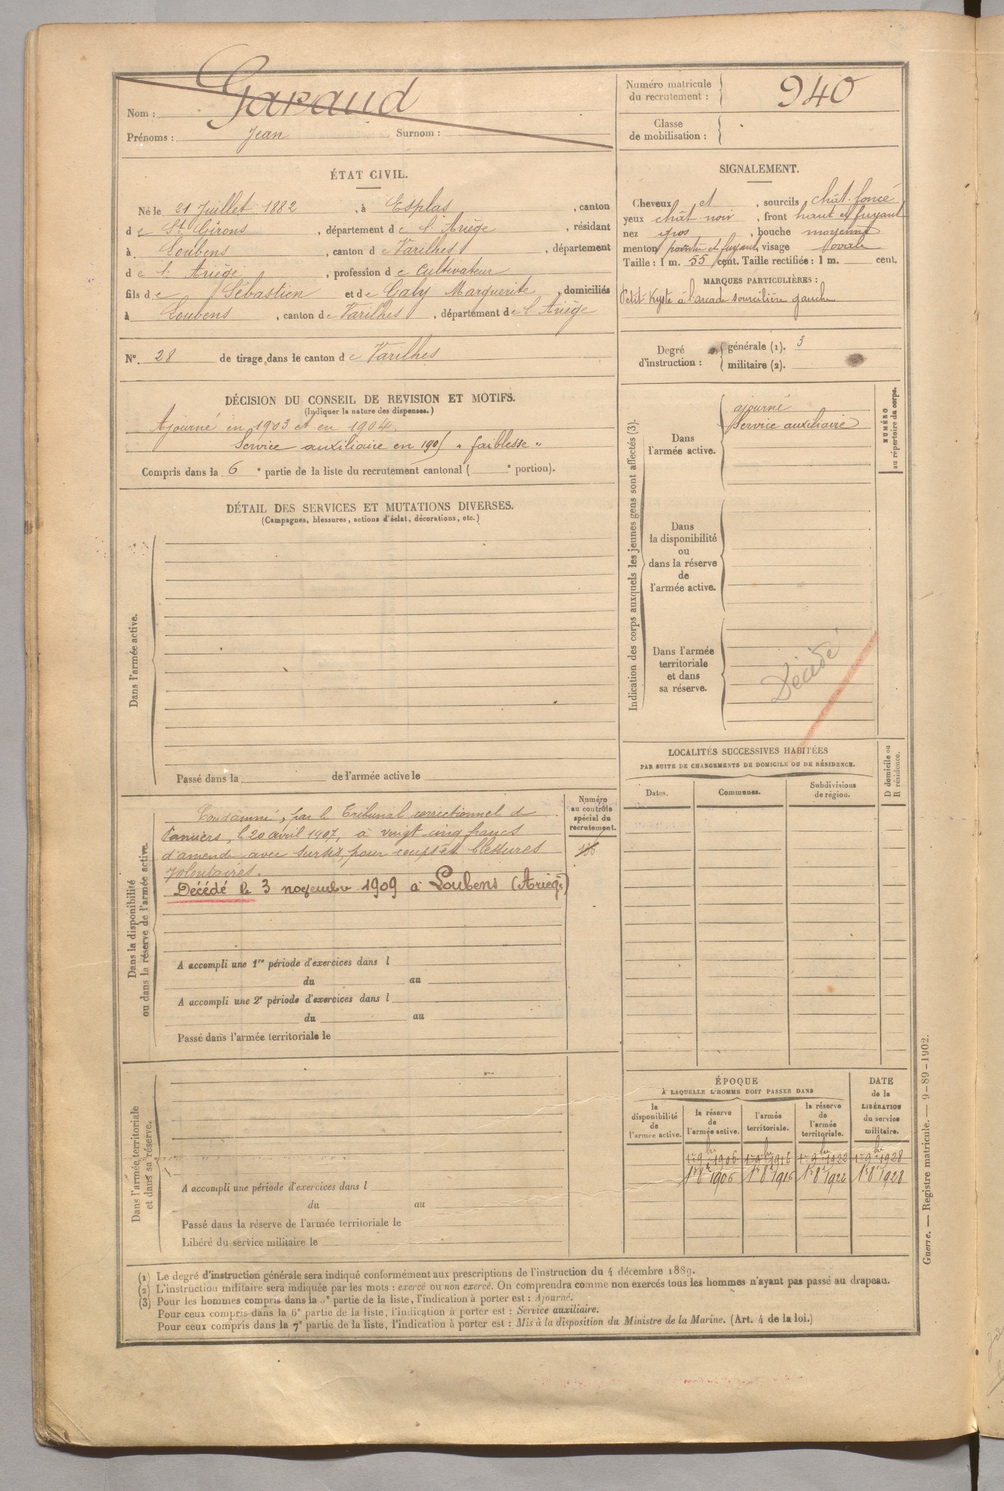 Nom : Garaud
Prénoms : Jean Surnom :
Numéro matricule du recrutement : 940
Classe de mobilisation :
ÉTAT CIVIL.
Né le 21 Juillet 1882, à Esplas, canton
de St Girons, département de l'Ariège, résidant
à Loubens, canton de Varilhes, département
de l'Ariège, profession de Cultivateur
fils de Sébastien et de Galy Marguerite, domiciliés
à Loubens, canton de Varilhes, département de l'Ariège
N° 28 de tirage dans le canton de Varilhes
SIGNALEMENT.
Cheveux et, sourcils chât. foncé
yeux chât noir, front haut et fuyant
nez gros, bouche moyenne
menton pointu et fuyant, visage ovale
Taille : 1 m. 55 cent. Taille rectifiée : 1 m. cent.
MARQUES PARTICULIÈRES :
Petit Kyste à l'arcade sourcilière gauche
Degré d'instruction : générale (1). 3
militaire (2).
DÉCISION DU CONSEIL DE REVISION ET MOTIFS.
(Indiquer la nature des dispenses.)
Ajourné en 1903 et en 1904.
Service auxiliaire en 1905 « faiblesse »
Compris dans la 6e partie de la liste du recrutement cantonal ( e portion).
DÉTAIL DES SERVICES ET MUTATIONS DIVERSES.
(Campagnes, blessures, actions d'éclat, décorations, etc.)
Dans l'armée active.
Passé dans la de l'armée active le
Indication des corps auxquels les jeunes gens sont affectés (3).
NUMÉRO au répertoire du corps.
Dans l'armée active.
ajourné
Service auxiliaire
Dans la disponibilité ou dans la réserve de l'armée active.
Dans l'armée territoriale et dans sa réserve.
Décédé
LOCALITÉS SUCCESSIVES HABITÉES
PAR SUITE DE CHANGEMENTS DE DOMICILE OU DE RÉSIDENCE.
Dates. Communes. Subdivisions de région. D domicile ou R résidence.
Dans la disponibilité ou dans la réserve de l'armée active.
Numéro au contrôle spécial du recrutement.
Condamné, par le Tribunal correctionnel de
Pamiers, le 20 avril 1907, à vingt cinq francs
d'amende avec sursis, pour coups et blessures
volontaires.
Décédé le 3 novembre 1909 à Loubens (Ariège)
A accompli une 1re période d'exercices dans l
du au
A accompli une 2e période d'exercices dans l
du au
Passé dans l'armée territoriale le
Dans l'armée territoriale et dans sa réserve.
A accompli une période d'exercices dans l
du au
Passé dans la réserve de l'armée territoriale le
Libéré du service militaire le
ÉPOQUE
À LAQUELLE L'HOMME DOIT PASSER DANS
DATE de la LIBÉRATION du service militaire.
la disponibilité de l'armée active. la réserve de l'armée active. l'armée territoriale. la réserve de l'armée territoriale.
1er 9bre 1906 1er 9bre 1916 1er 9bre 1922 1er 9bre 1928
1er 8bre 1906 1er 8bre 1916 1er 8bre 1922 1er 8bre 1928
(1) Le degré d'instruction générale sera indiqué conformément aux prescriptions de l'instruction du 4 décembre 1889.
(2) L'instruction militaire sera indiquée par les mots : exercé ou non exercé. On comprendra comme non exercés tous les hommes n'ayant pas passé au drapeau.
(3) Pour les hommes compris dans la 5e partie de la liste, l'indication à porter est : Ajourné.
Pour ceux compris dans la 6e partie de la liste, l'indication à porter est : Service auxiliaire.
Pour ceux compris dans la 7e partie de la liste, l'indication à porter est : Mis à la disposition du Ministre de la Marine. (Art. 4 de la loi.)
Guerre. — Registre matricule. — 9-89-1902.